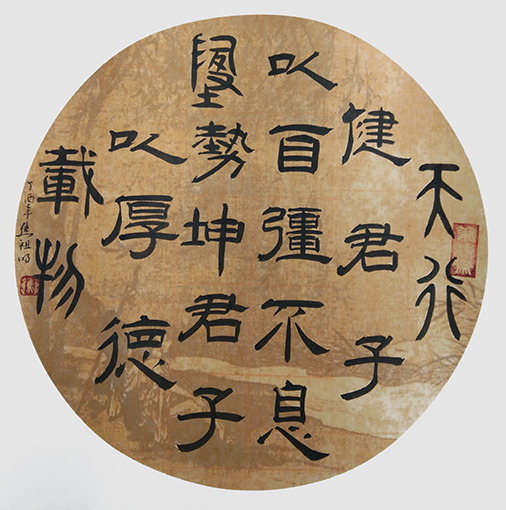 天行
健君子
以自彊不息
墬勢坤君子
以厚德
載物
丁酉年焦祖明